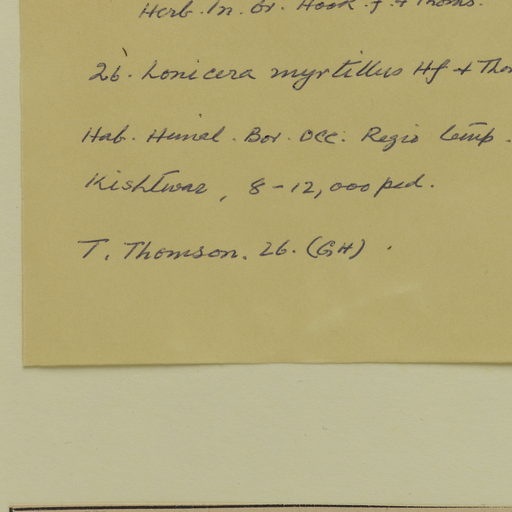 Herb. In. Or. Hook. f. & Thoms.
26. Lonicera myrtillus Hf & Tho
Hab. Himal. Bor. Occ. Regio temp.
Kishtwar, 8-12,000 ped.
T. Thomson. 26. (GH).